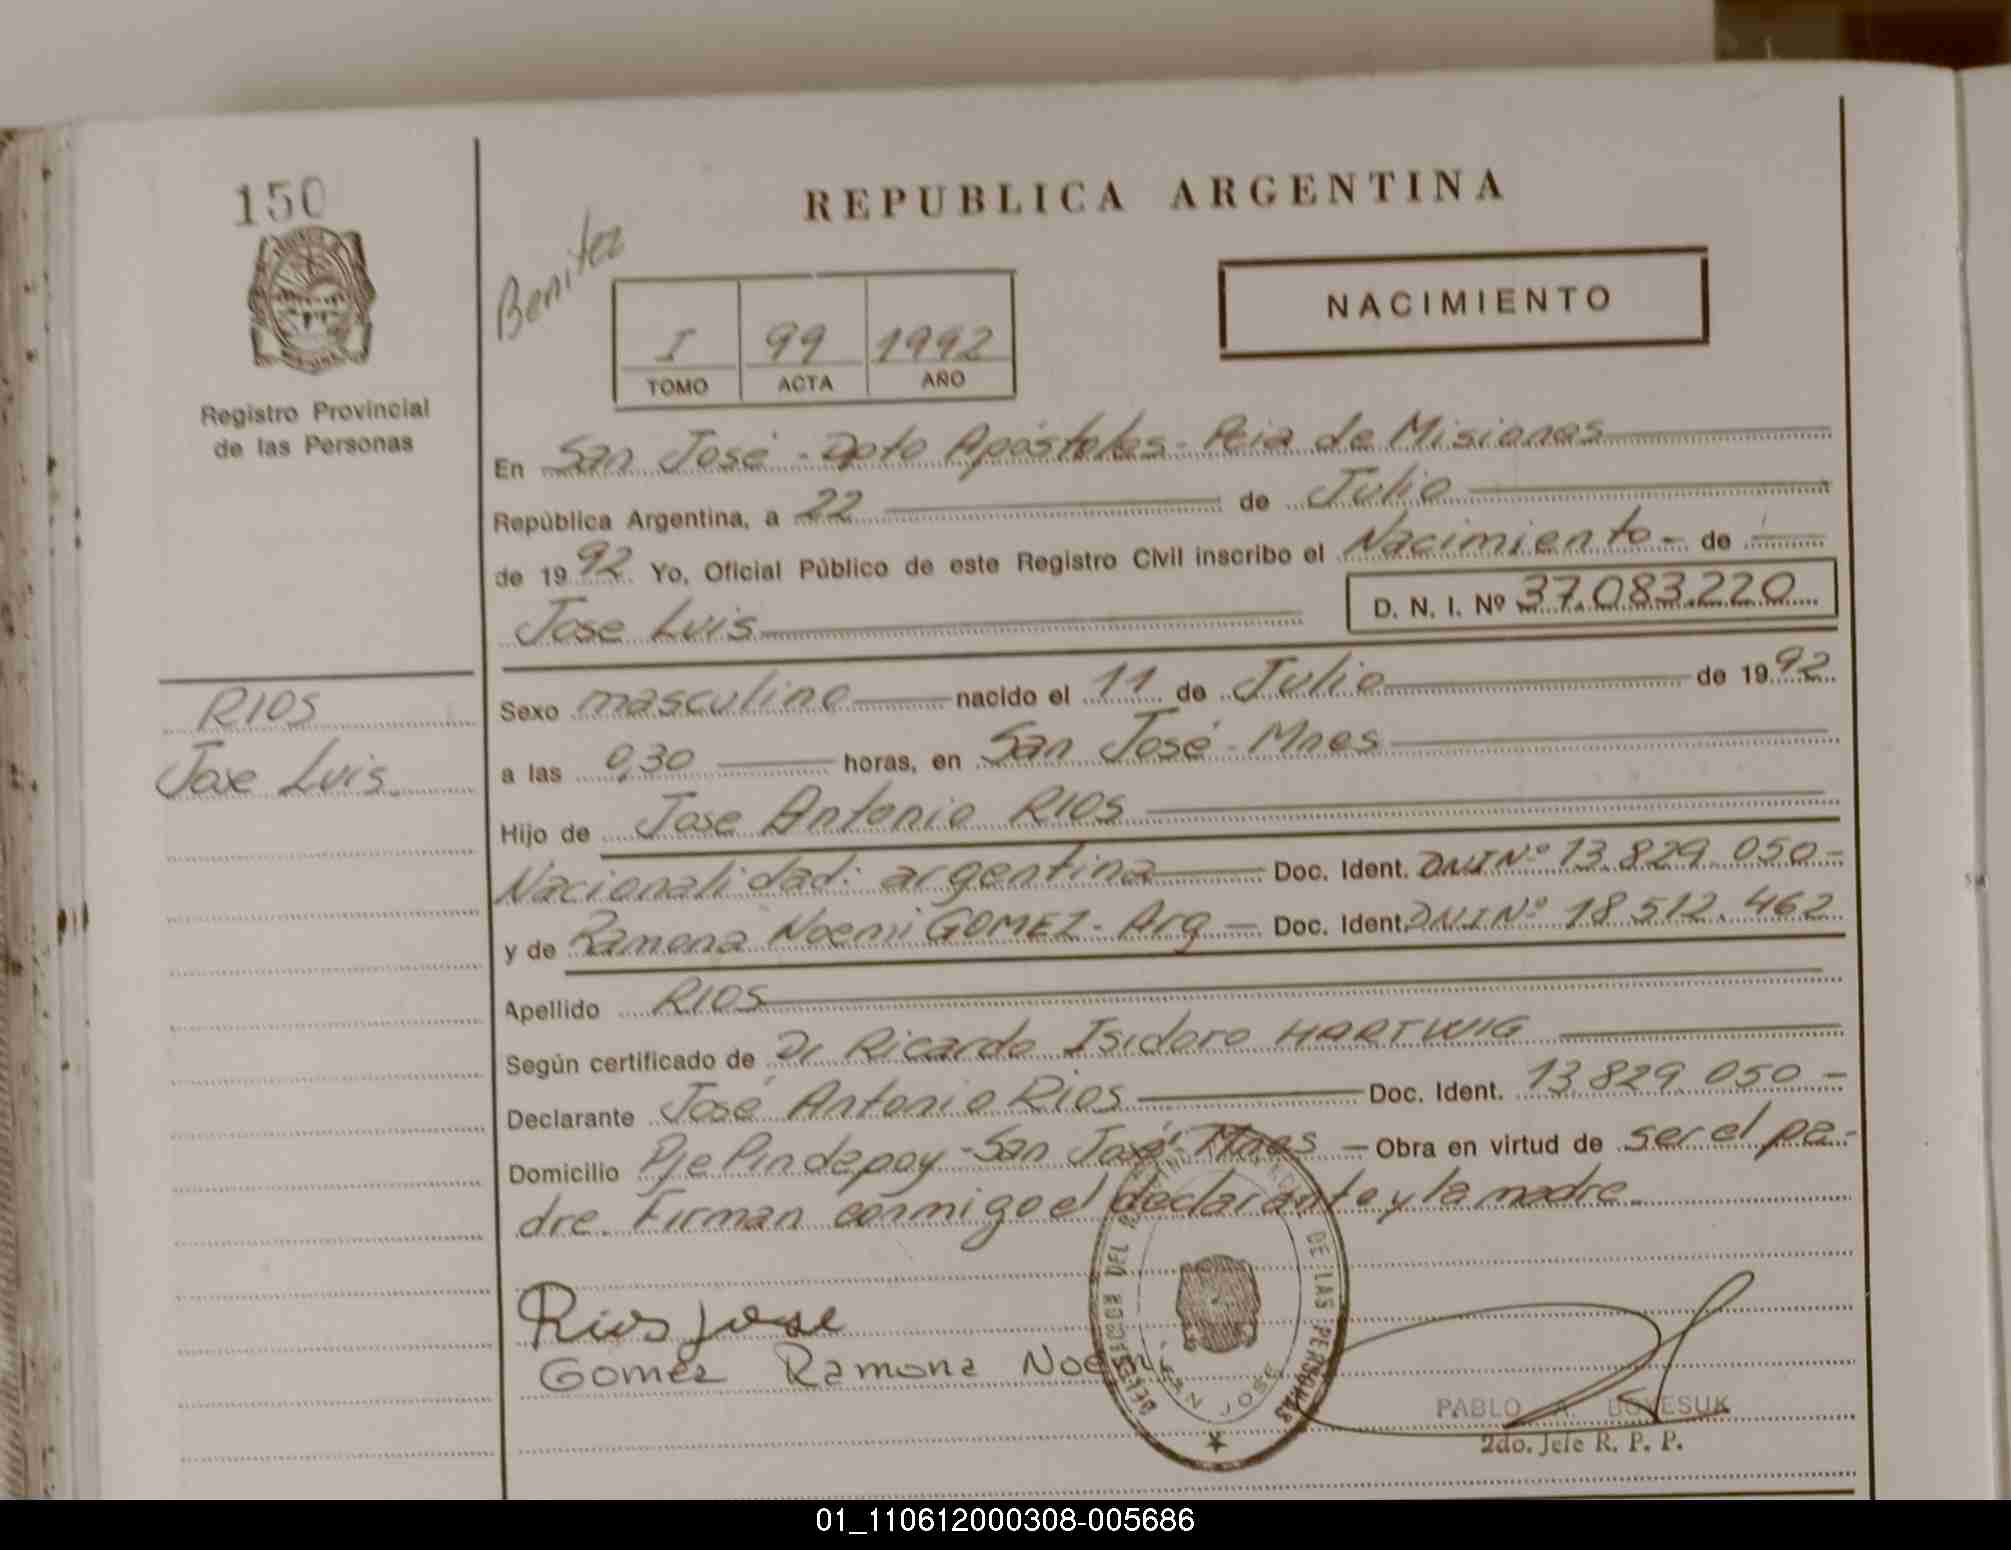 150
REPUBLICA ARGENTINA
Benitez
NACIMIENTO
I 99 1992
TOMO ACTA AÑO
Registro Provincial
de las Personas
En San José - Dpto Apóstoles - Pcia de Misiones
República Argentina, a 22 de Julio
de 1992 Yo, Oficial Público de este Registro Civil inscribo el Nacimiento - de
Jose Luis
D. N. I. Nº 37.083.220
RIOS
Jose Luis
Sexo masculino nacido el 11 de Julio de 1992
a las 0,30 horas, en San José - Mnes
Hijo de Jose Antonio RIOS
Nacionalidad: argentina Doc. Ident. DNI Nº 13.829.050 -
y de Ramona Noemi GOMEZ - Arg - Doc. Ident. DNI Nº 18.512.462
Apellido RIOS
Según certificado de Dr Ricardo Isidoro HARTWIG
Declarante José Antonio Rios Doc. Ident. 13.829.050 -
Domicilio Pje Pindapoy - San José - Mnes - Obra en virtud de ser el pa-
dre. Firman conmigo el declarante y la madre.
Rios Jose
Gomez Ramona Noemi
DE LAS PERSONAS
SAN JOSE
PABLO A.
2do. Jefe R. P. P.
01_110612000308-005686